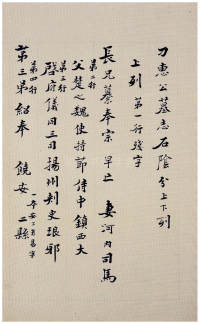 刁惠公墓志石陰分上下列
上列 第一行殘字
長兄纂奉宗 早亡 妻河內司馬
第二行
父楚之魏使持節侍中鎮西大
第三行
啓府儀同三司揚州刺史琅邪
第四行
第三弟紹奉 饒安 二縣